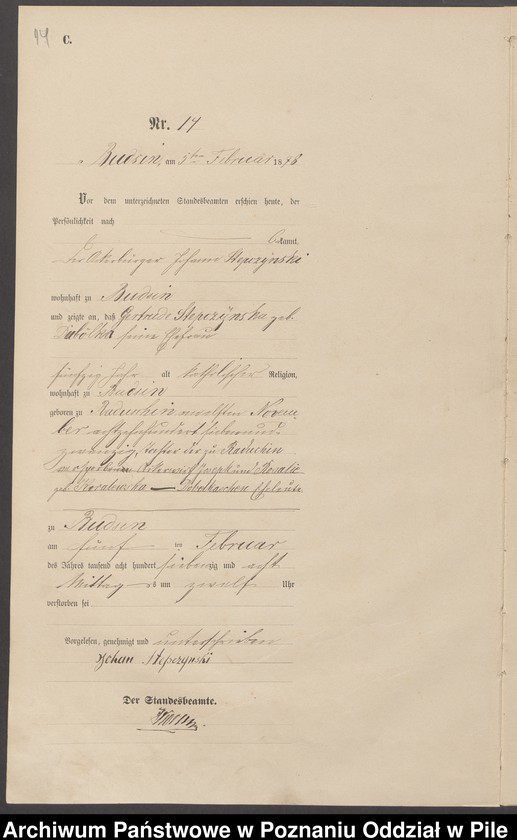 14 C.
Nr. 14
Budsin, am 5ten Februar 1878
Vor dem unterzeichneten Standesbeamten erschien heute, der
Persönlichkeit nach
bekannt,
der Ackerbürger Johann Stepczynski
wohnhaft zu Budsin
und zeigte an, daß Gertrude Stepczynska geb.
seine Ehefrau
fünfzig Jahr alt katholischer Religion,
wohnhaft zu Budsin
geboren zu am elften Novem-
ber achtzehnhundert sieben und
zwanzig, Tochter der zu
verstorbenen Rosalie
geb. Eheleute
zu Budsin
am fünf ten Februar
des Jahres tausend acht hundert siebenzig und acht
Mittags um zwölf Uhr
verstorben sei
Vorgelesen, genehmigt und unterschrieben
Johan Stepczynski
Der Standesbeamte.
Archiwum Państwowe w Poznaniu Oddział w Pile